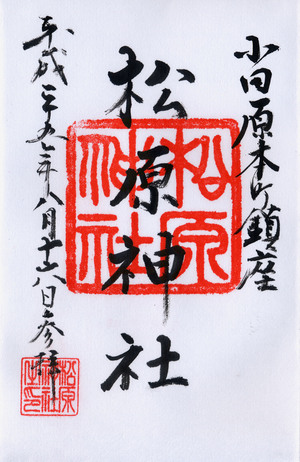 小田原本町鎮座
松原神社
平成二九年八月十八日参拝
松原
神社
松原
神社
之印